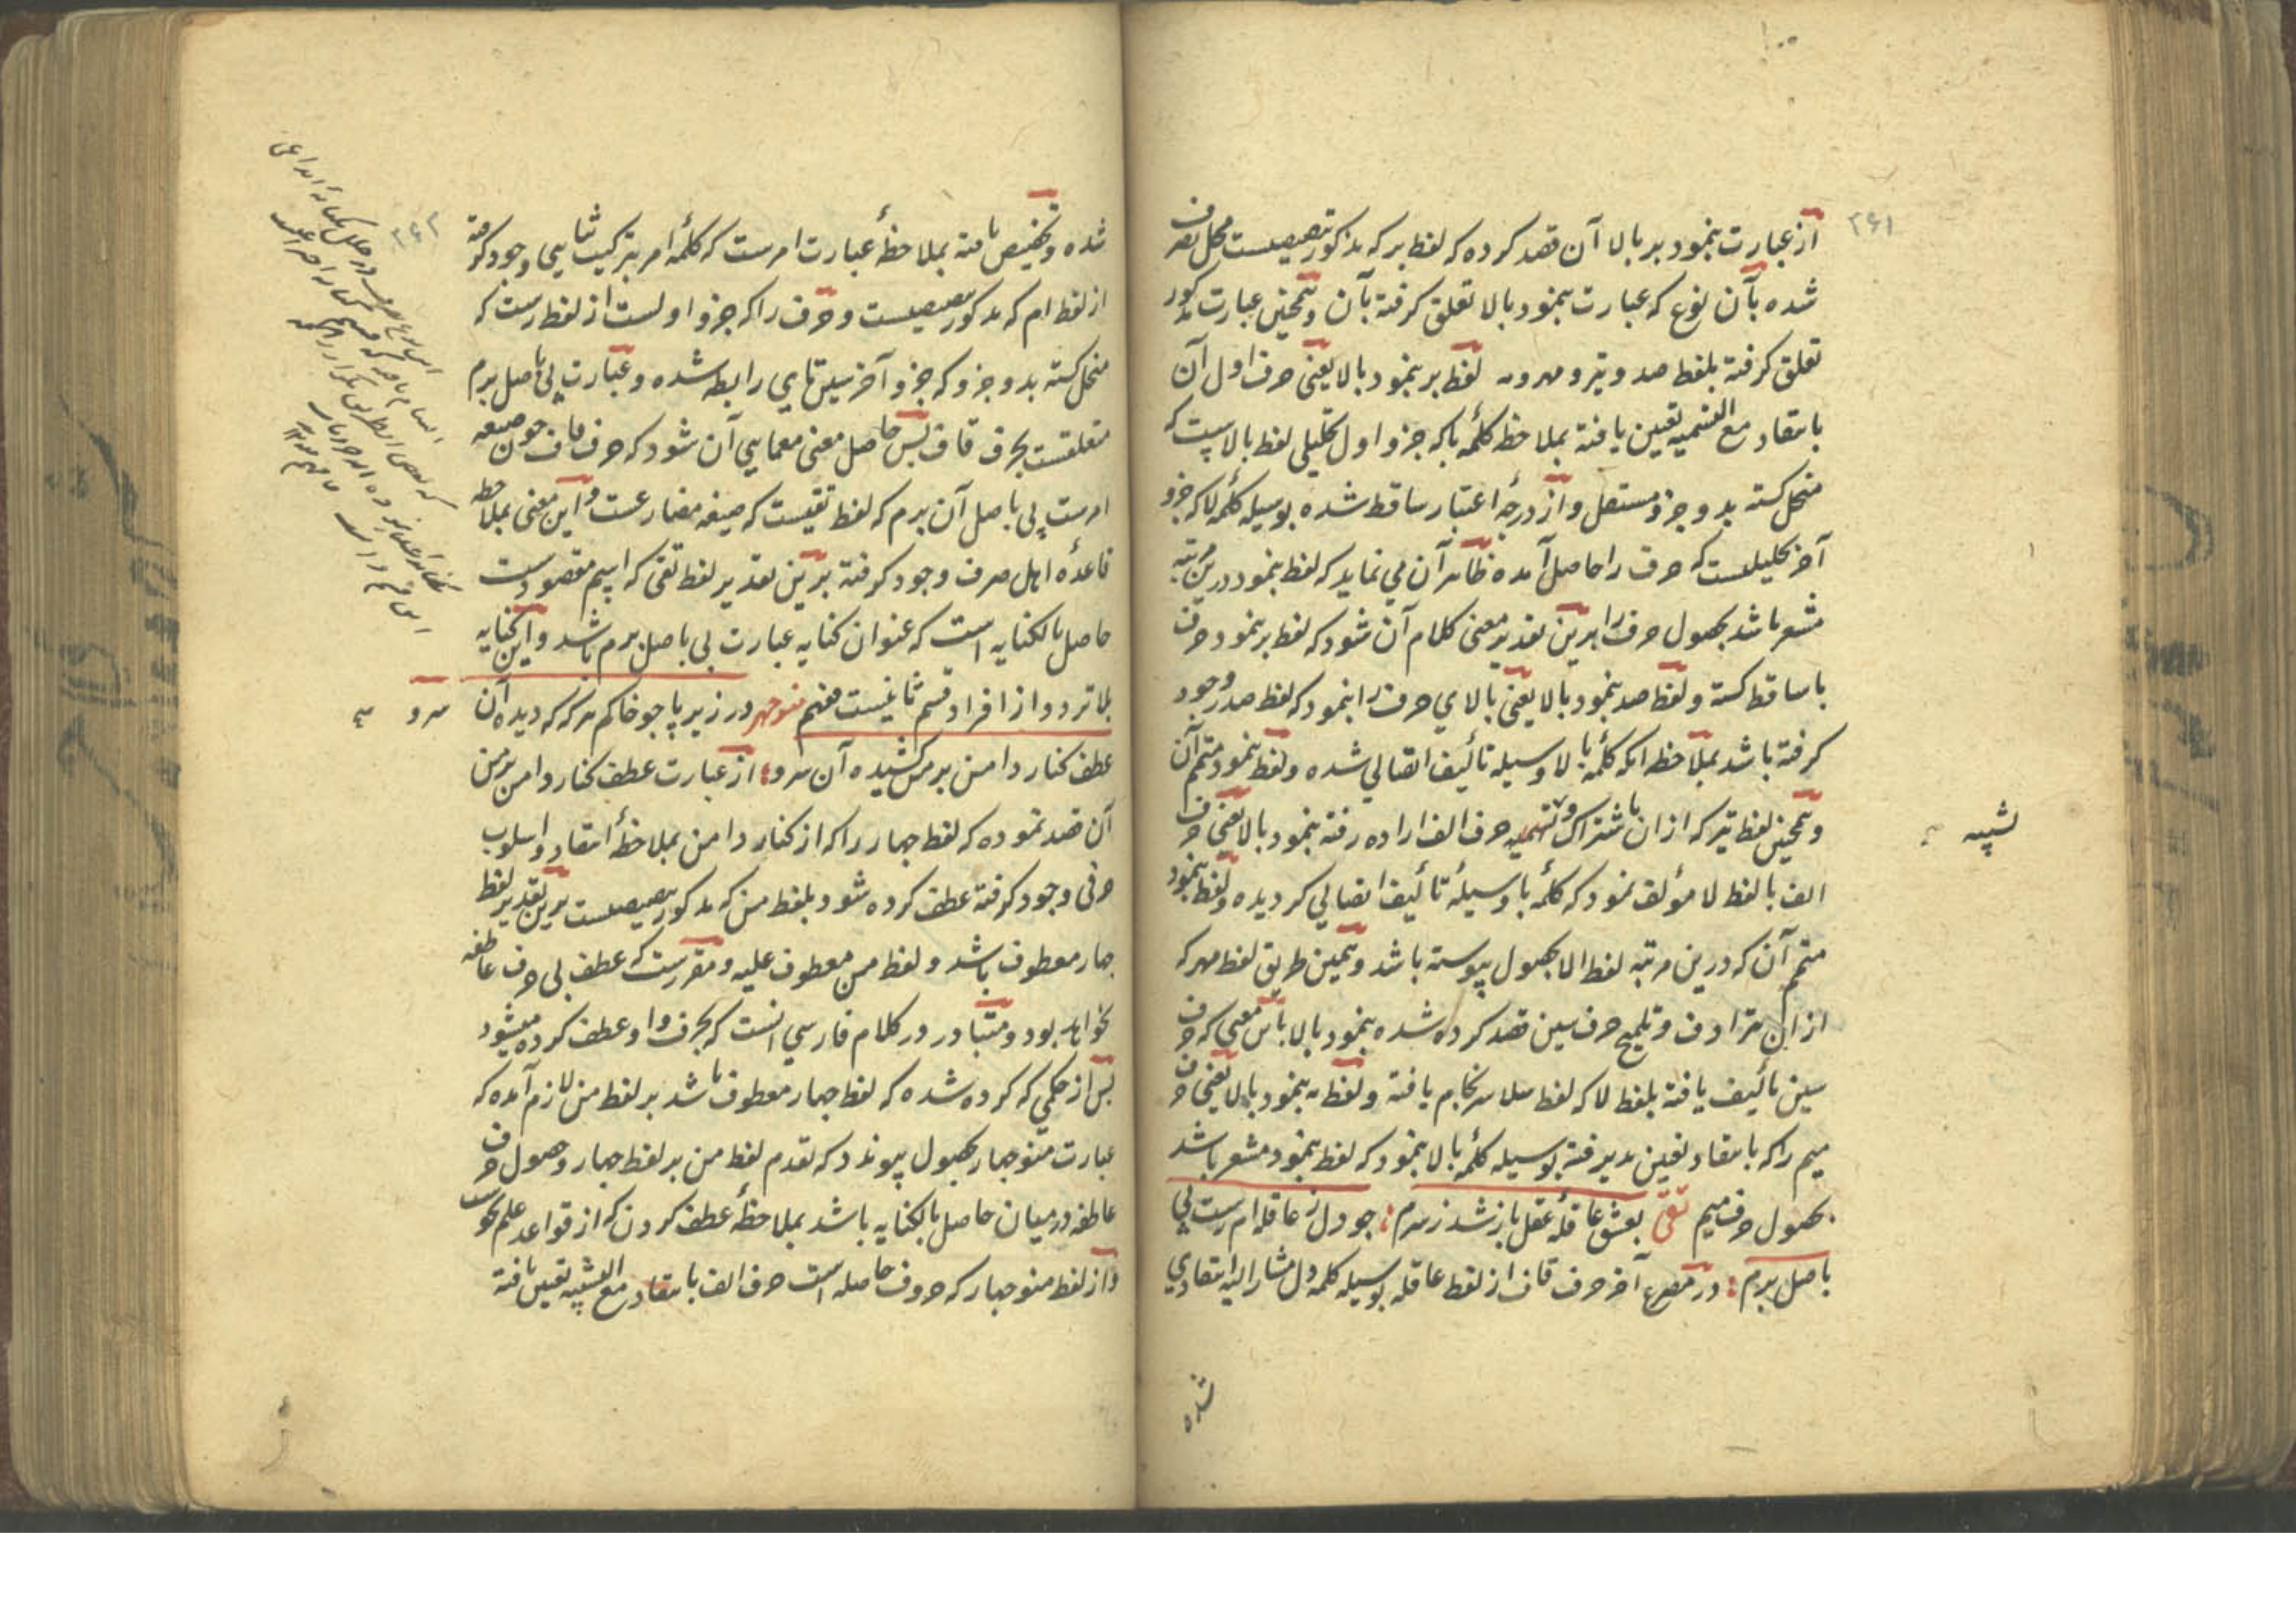 ۲۶۱
از عبارت بنمود بر بالا آن قصد کرده که لفظ بر که مذکور تنصیصیست محل تصرف
شده بآن نوع که عبارت بنمود بالا تعلق گرفته بآن و همچنین عبارت مذکور
تعلق گرفته بلفظ صد و تیر و مهر و مه لفظ بر بنمود بالا یعنی حرف اول آن
بانتقاد مع التسمیه تعین یافته بملاحظه کلمه با که جزو اول تحلیلی لفظ بالاییست که
منحل گشته بدو جزو مستقل و از درجهٔ اعتبار ساقط شده بوسیله کلمه لا که جزو
آخر تحلیلیست که حرف را حاصل آمده ظاهر آن می نماید که لفظ بنمود درین مرتبه
مشعر باشد بحصول حرف را برین تقدیر معنی کلام آن شود که لفظ بر بنمود حرف
با ساقط گشته و لفظ صد بنمود بالا یعنی بالای حرف را بنمود که لفظ صدر وجود
گرفته باشد بملاحظه انکه کلمه با لا وسیله تألیف اتصالی شده و لفظ بنمود متمم آن
و همچنین لفظ تیر که از ان باشتراک و تسمیه حرف الف اراده رفته بنمود بالا یعنی حرف
الف با لفظ لا مؤلف نمود که کلمه با وسیلهٔ تألیف اتصالی گردیده و لفظ بنمود
متمم آن که درین مرتبه لفظ الا بحصول پیوسته باشد و بهمین طریق لفظ مهر که
از ان بترادف و تلمیح حرف سین قصد کرده شده بنمود بالا باین معنی که حرف
سین تألیف یافته بلفظ لا که لفظ سلا سرانجام یافته و لفظ مه بنمود بالا یعنی حرف
میم را که بانتقاد تعین پذیرفته بوسیله کلمهٔ بالا بنمود که لفظ بنمود مشعر باشد
بحصول حرف میم تقی بعشق عاقلهٔ عقل باز شد ز سرم : جو دل ز عاقله ام رست پی
باصل برم : در مصرع آخر حرف قاف از لفظ عاقله بوسیله کلمه دل مشار الیه انتقادی
شده
تشبیه
۲۶۲
شده و تخصیص یافته بملاحظهٔ عبارت ام رست که کلمهٔ امر بترکیب ثنایی وجود گرفته
از لفظ ام که مذکور تنصیصیست و حرف را که جزو اولست از لفظ رست که
منحل گشته بدو جزو که جزو آخر سین تای رابط شده و عبارت پی باصل برم
متعلقست بحرف قاف پس حاصل معنی معمایی آن شود که حرف قاف چون صیغه
امرست پی باصل آن برم که لفظ تقیست که صیغه مضارعست و این معنی بملاحظه
قاعدهٔ اهل صرف وجود گرفته برین تقدیر لفظ تقی که اسم مقصودست
حاصل بالکنایه است که عنوان کنایه عبارت پی باصل برم باشد و این کنایه
بلا تردد از افراد قسم ثانیست فنهم منوجهر در زیر پا جو خاکم هر که که دیده آن
عطف کنار دامن بر من کشیده آن سرو : از عبارت عطف کنار دامن بر من
آن قصد نموده که لفظ جهار را که از کنار دامن بملاحظهٔ انتقاد و اسلوب
حرفی وجود گرفته عطف کرده شود بلفظ من که مذکور تنصیصیست برین تقدیر لفظ
جهار معطوف باشد و لفظ من معطوف علیه و مقررست که عطف بی حرف عاطفه
نخواهد بود و متبادر در کلام فارسی انست که بحرف واو عطف کرده میشود
پس از حکمی که کرده شده که لفظ جهار معطوف باشد بر لفظ من لازم آمده که
عبارت منوجهار بحصول پیوندد که تقدم لفظ من بر لفظ جهار و حصول حرف
عاطفه درمیان حاصل بالکنایه باشد بملاحظهٔ عطف کردن که از قواعد علم نحوست
و از لفظ منوجهار که حروف حاصله است حرف الف بانتقاد مع التشبیه تعین یافته
سرو